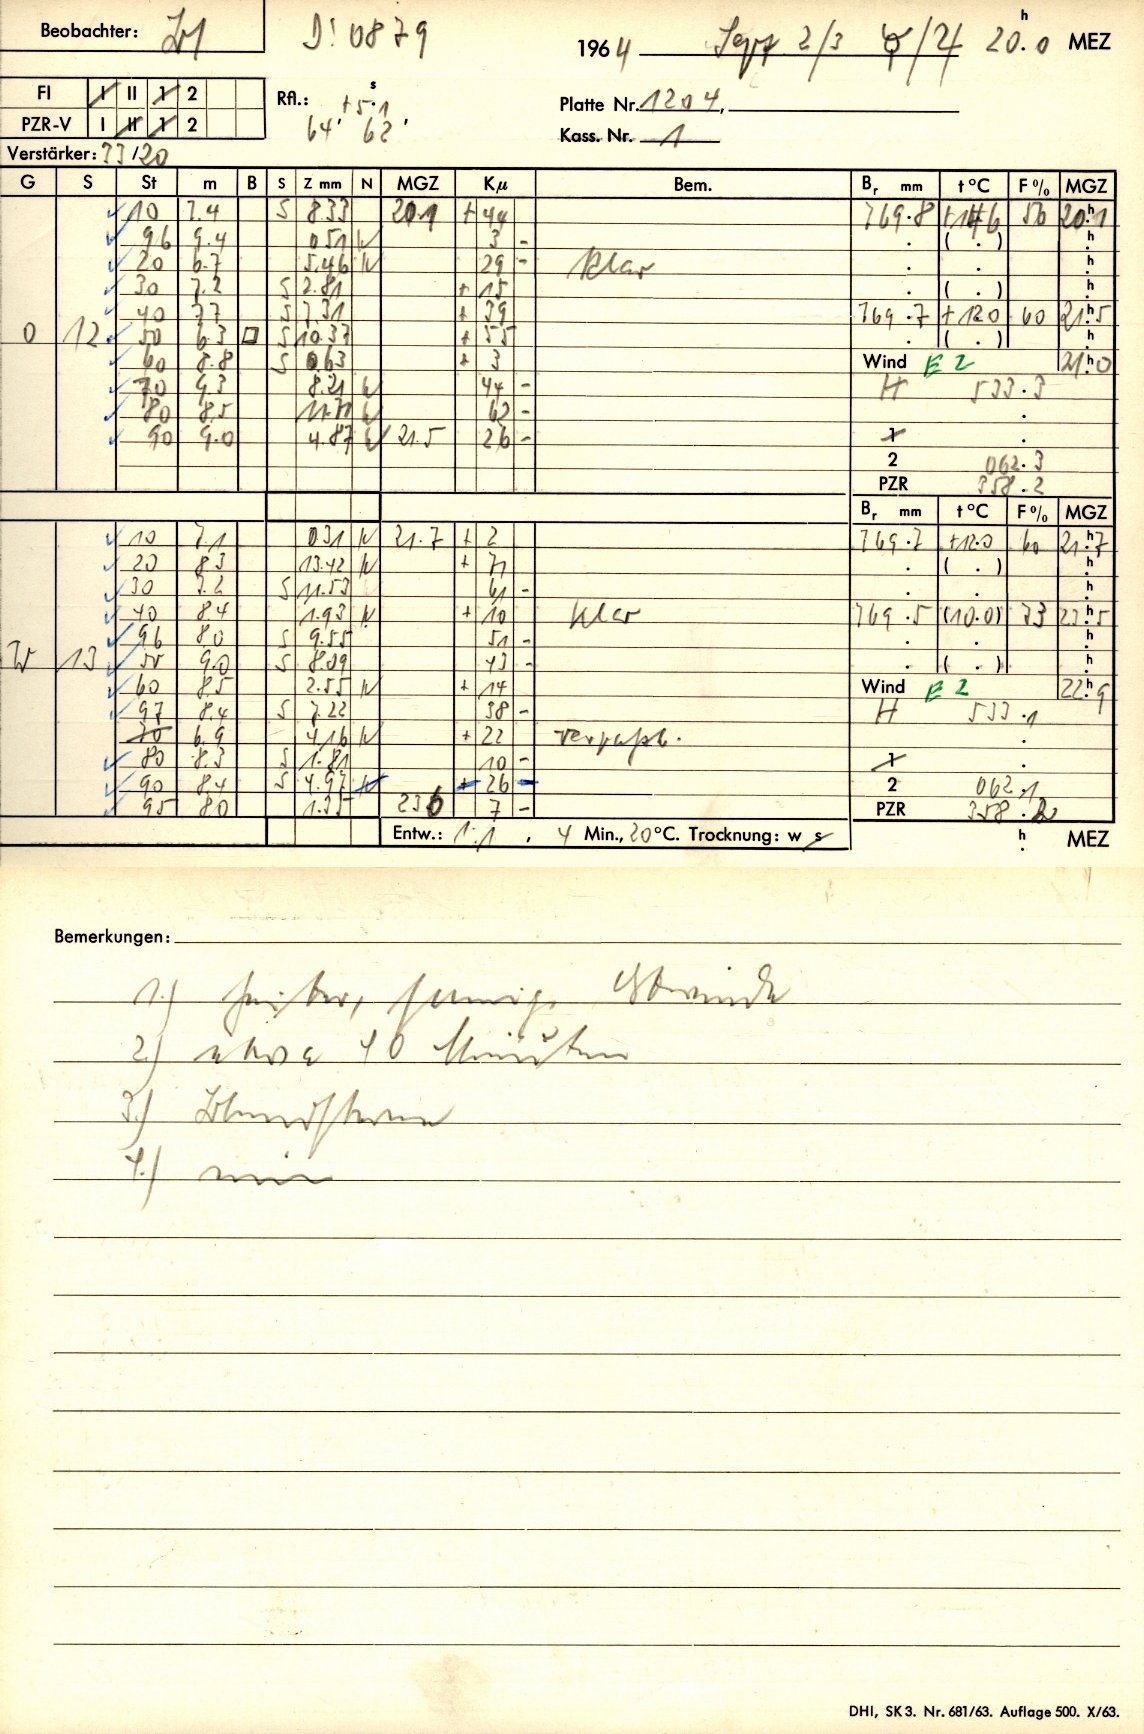 Beobachter:
D! 0879
1964 Sept 2/3 20.0 h MEZ
FI I II 1 2
PZR-V I II 1 2
Rfl.: +5.1 s
64' 62'
Platte Nr. 1204,
Kass. Nr. 1
Verstärker: 33/20
G S St m B S Z mm N MGZ Kμ Bem. Br mm t °C F % MGZ
10 7.4 S 8.33 20.1 + 44 769.8 50 20.1 h
96 9.4 0.51 N 3 - ( . ) h
20 6.7 5.46 N 29 - klar h
30 7.2 S 2.81 + 15 ( . ) h
40 7.7 S 7.31 + 39 769.7 +12.0 60 21.5 h
O 12 50 6.3 □ S 10.37 + 55 ( . ) h
60 8.8 S 0.63 + 3 Wind E 2 21.0 h
70 9.3 8.21 N 44 - H 533.3
80 8.5 11.71 N 62 -
90 9.0 4.87 N 21.5 26 - 1
2 062.3
PZR 358.2
Br mm t °C F % MGZ
10 7.1 0.31 N 21.7 + 2 769.7 +12.0 60 21.7 h
20 8.3 13.42 N + 71 ( . ) h
30 7.2 S 11.53 61 - h
40 8.4 1.93 N + 10 klar 769.5 (10.0) 73 23.5 h
96 8.0 S 9.55 51 - h
W 13 50 9.0 S 8.09 43 - ( . ) h
60 8.5 2.55 N + 14 Wind E 2 22.9 h
97 8.4 S 7.22 38 - H 533.1
70 6.9 4.16 N + 22 verpaßt.
80 8.3 S 1.81 10 - 1
90 8.4 S 4.97 26 - 2 062.1
95 8.0 1.35 23.6 7 - PZR 358.2
Entw.: 1:1, 4 Min., 20 °C. Trocknung: w s h MEZ
Bemerkungen:
1.) heiter, Ostwinde
2.) etwa 40 Minuten
3.)
4.)
DHI, SK 3. Nr. 681/63. Auflage 500. X/63.